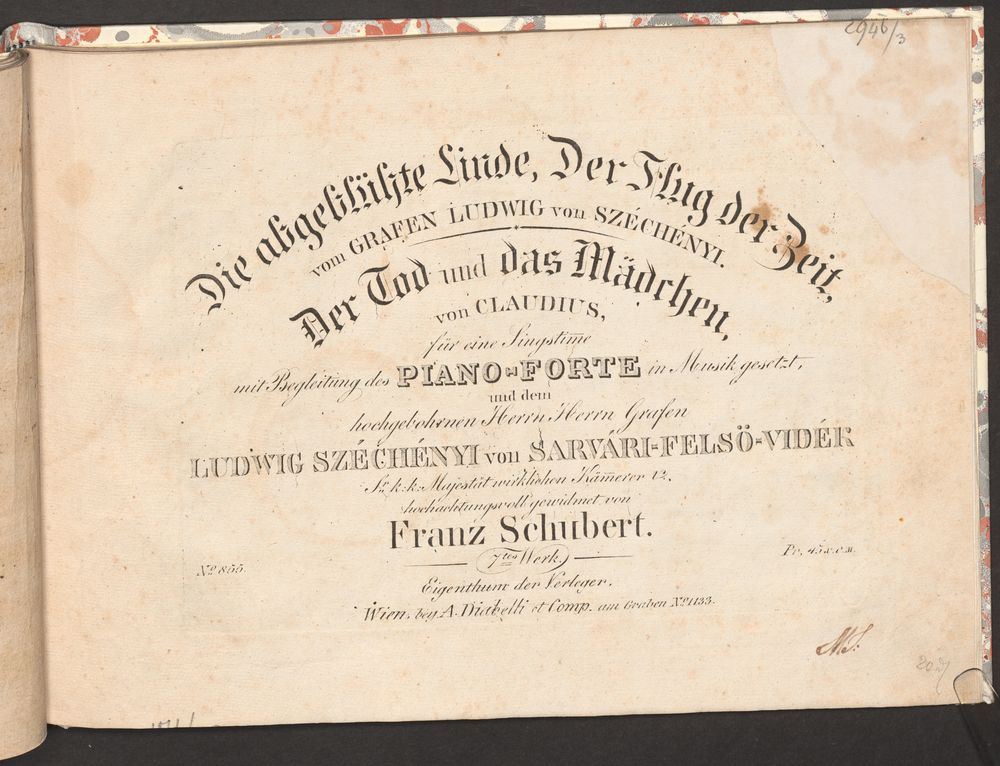 2946/3
Die abgeblühte Linde, Der Flug der Zeit,
vom GRAFEN LUDWIG von SZÉCHÉNYI.
Der Tod und das Mädchen,
von CLAUDIUS,
für eine Singstim̅e
mit Begleitung des PIANO-FORTE in Musik gesetzt,
und dem
hochgebohrnen Herrn Herrn Grafen
LUDWIG SZÉCHÉNYI von SARVÁRI-FELSÖ-VIDÉK
Sr. k: k: Majestät wirklichen Käm̅erer &c.
hochachtungsvoll gewidmet von
Franz Schubert.
7tes Werk.
No 855. Pr, 45 x. C.M.
Eigenthum der Verleger.
Wien, bey A. Diabelli et Comp. am Graben No 1133.